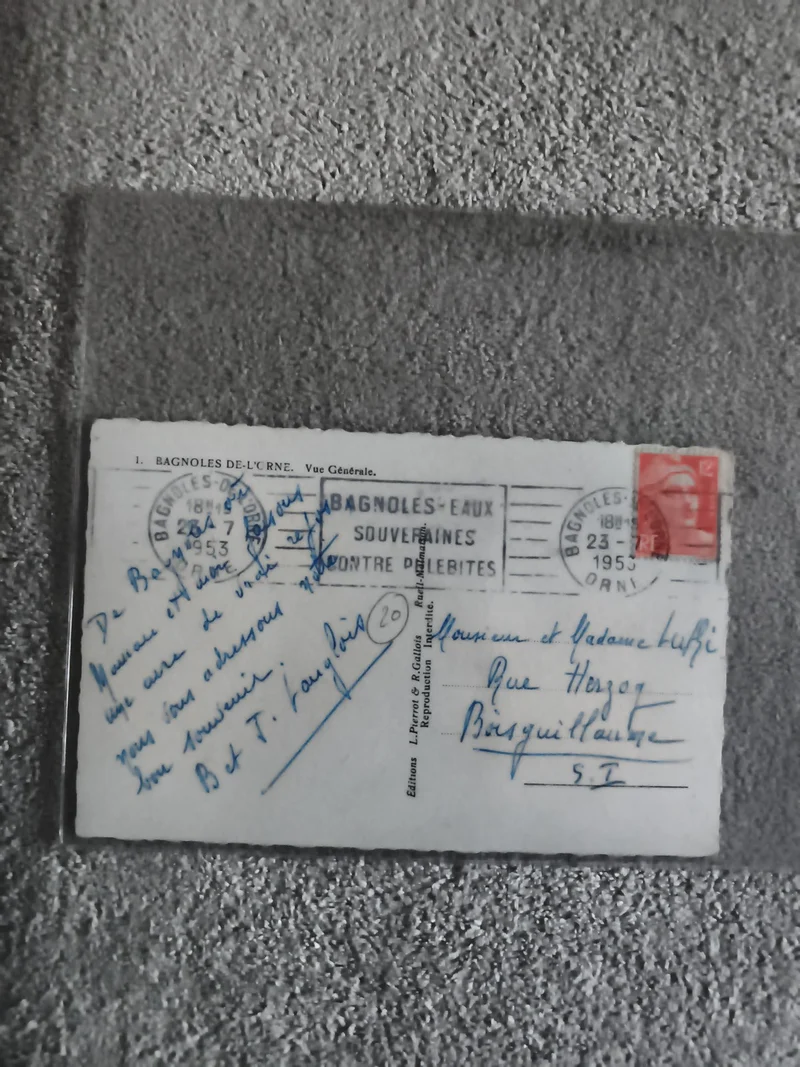 1. BAGNOLES DE-L'ORNE. Vue Générale.
BAGNOLES-DE-L'ORNE
18H15
23 - 7
1953
ORNE
BAGNOLES-EAUX
SOUVERAINES
CONTRE PHLEBITES
BAGNOLES-
18H15
23 - 7
1953
ORNE
12
RF
De Bagnoles où
Maman et moi faisons
une cure de vrai repos
nous vous adressons notre
bon souvenir.
B et T. Langlois
20
Editions L. Pierrot & R. Gallois Rueil-Malmaison.
Reproduction Interdite.
Monsieur et Madame
Rue Herzog
Boisguillaume
S. I